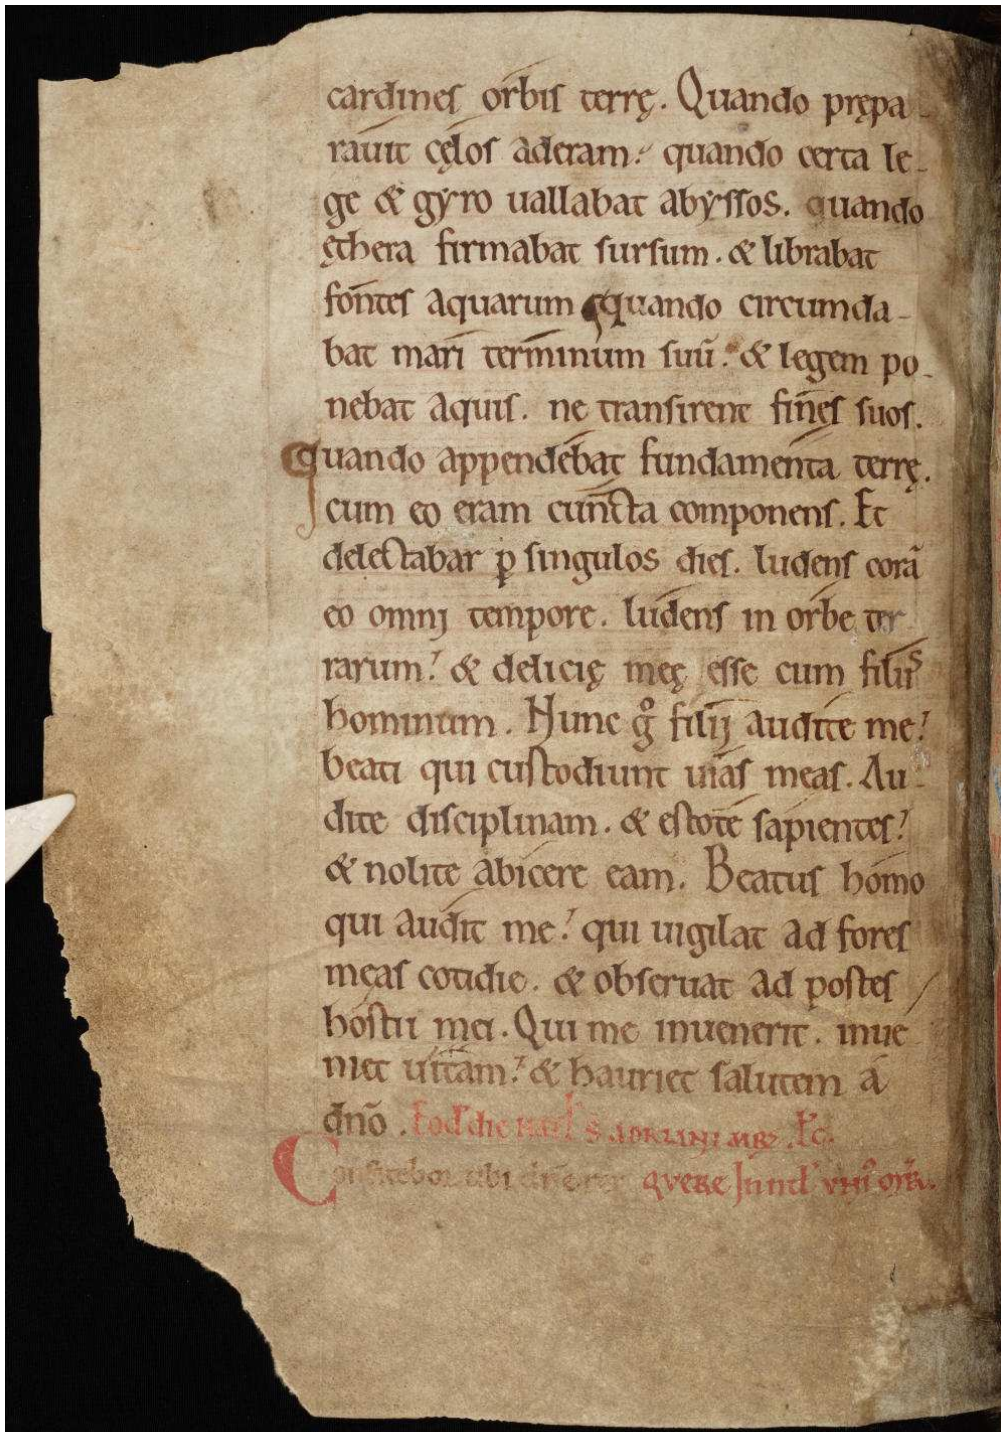 cardines orbis terrę. Quando prępa-
rauit cęlos aderam: quando certa le-
ge & gyro uallabat abyssos. quando
ęthera firmabat sursum. & librabat
fontes aquarum quando circumda-
bat mari terminum suū: & legem po-
nebat aquis. ne transirent fines suos.
Quando appendebat fundamenta terrę.
cum eo eram cuncta componens. Et
delectabar ꝑ singulos dies. ludens corā
eo omnj tempore. ludens in orbe ter
rarum: & delicię meę esse cum filiis
hominum. Nunc gͦ filij audite me:
beati qui custodiunt uias meas. Au-
dite disciplinam. & estote sapientes:
& nolite abicere eam. Beatus homo
qui audit me: qui uigilat ad fores
meas cotidie. & obseruat ad postes
hostii mei. Qui me inuenerit. inue
niet uitam: & hauriet salutem a
dnō. Eod' die S. ADRIANI MR̄. Ec̄.
Confitebor tibi dn̄e rex QVERE